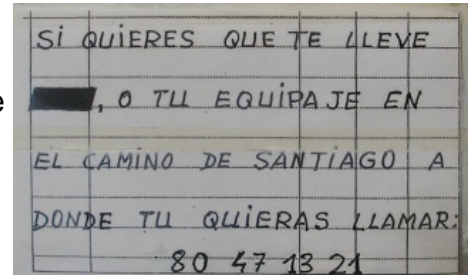 SI QUIERES QUE TE LLEVE
, O TU EQUIPAJE EN
EL CAMINO DE SANTIAGO A
DONDE TU QUIERAS LLAMAR:
80 47 13 21